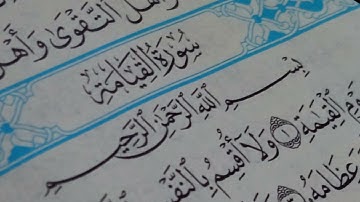 هل التقوى وأهل
سُورَةُ القِيَامَةِ
بِسْمِ اللَّهِ الرَّحْمَٰنِ الرَّحِيمِ
الْقِيَٰمَةِ ١ وَلَا أُقْسِمُ بِالنَّفْسِ
عِظَامَهُ